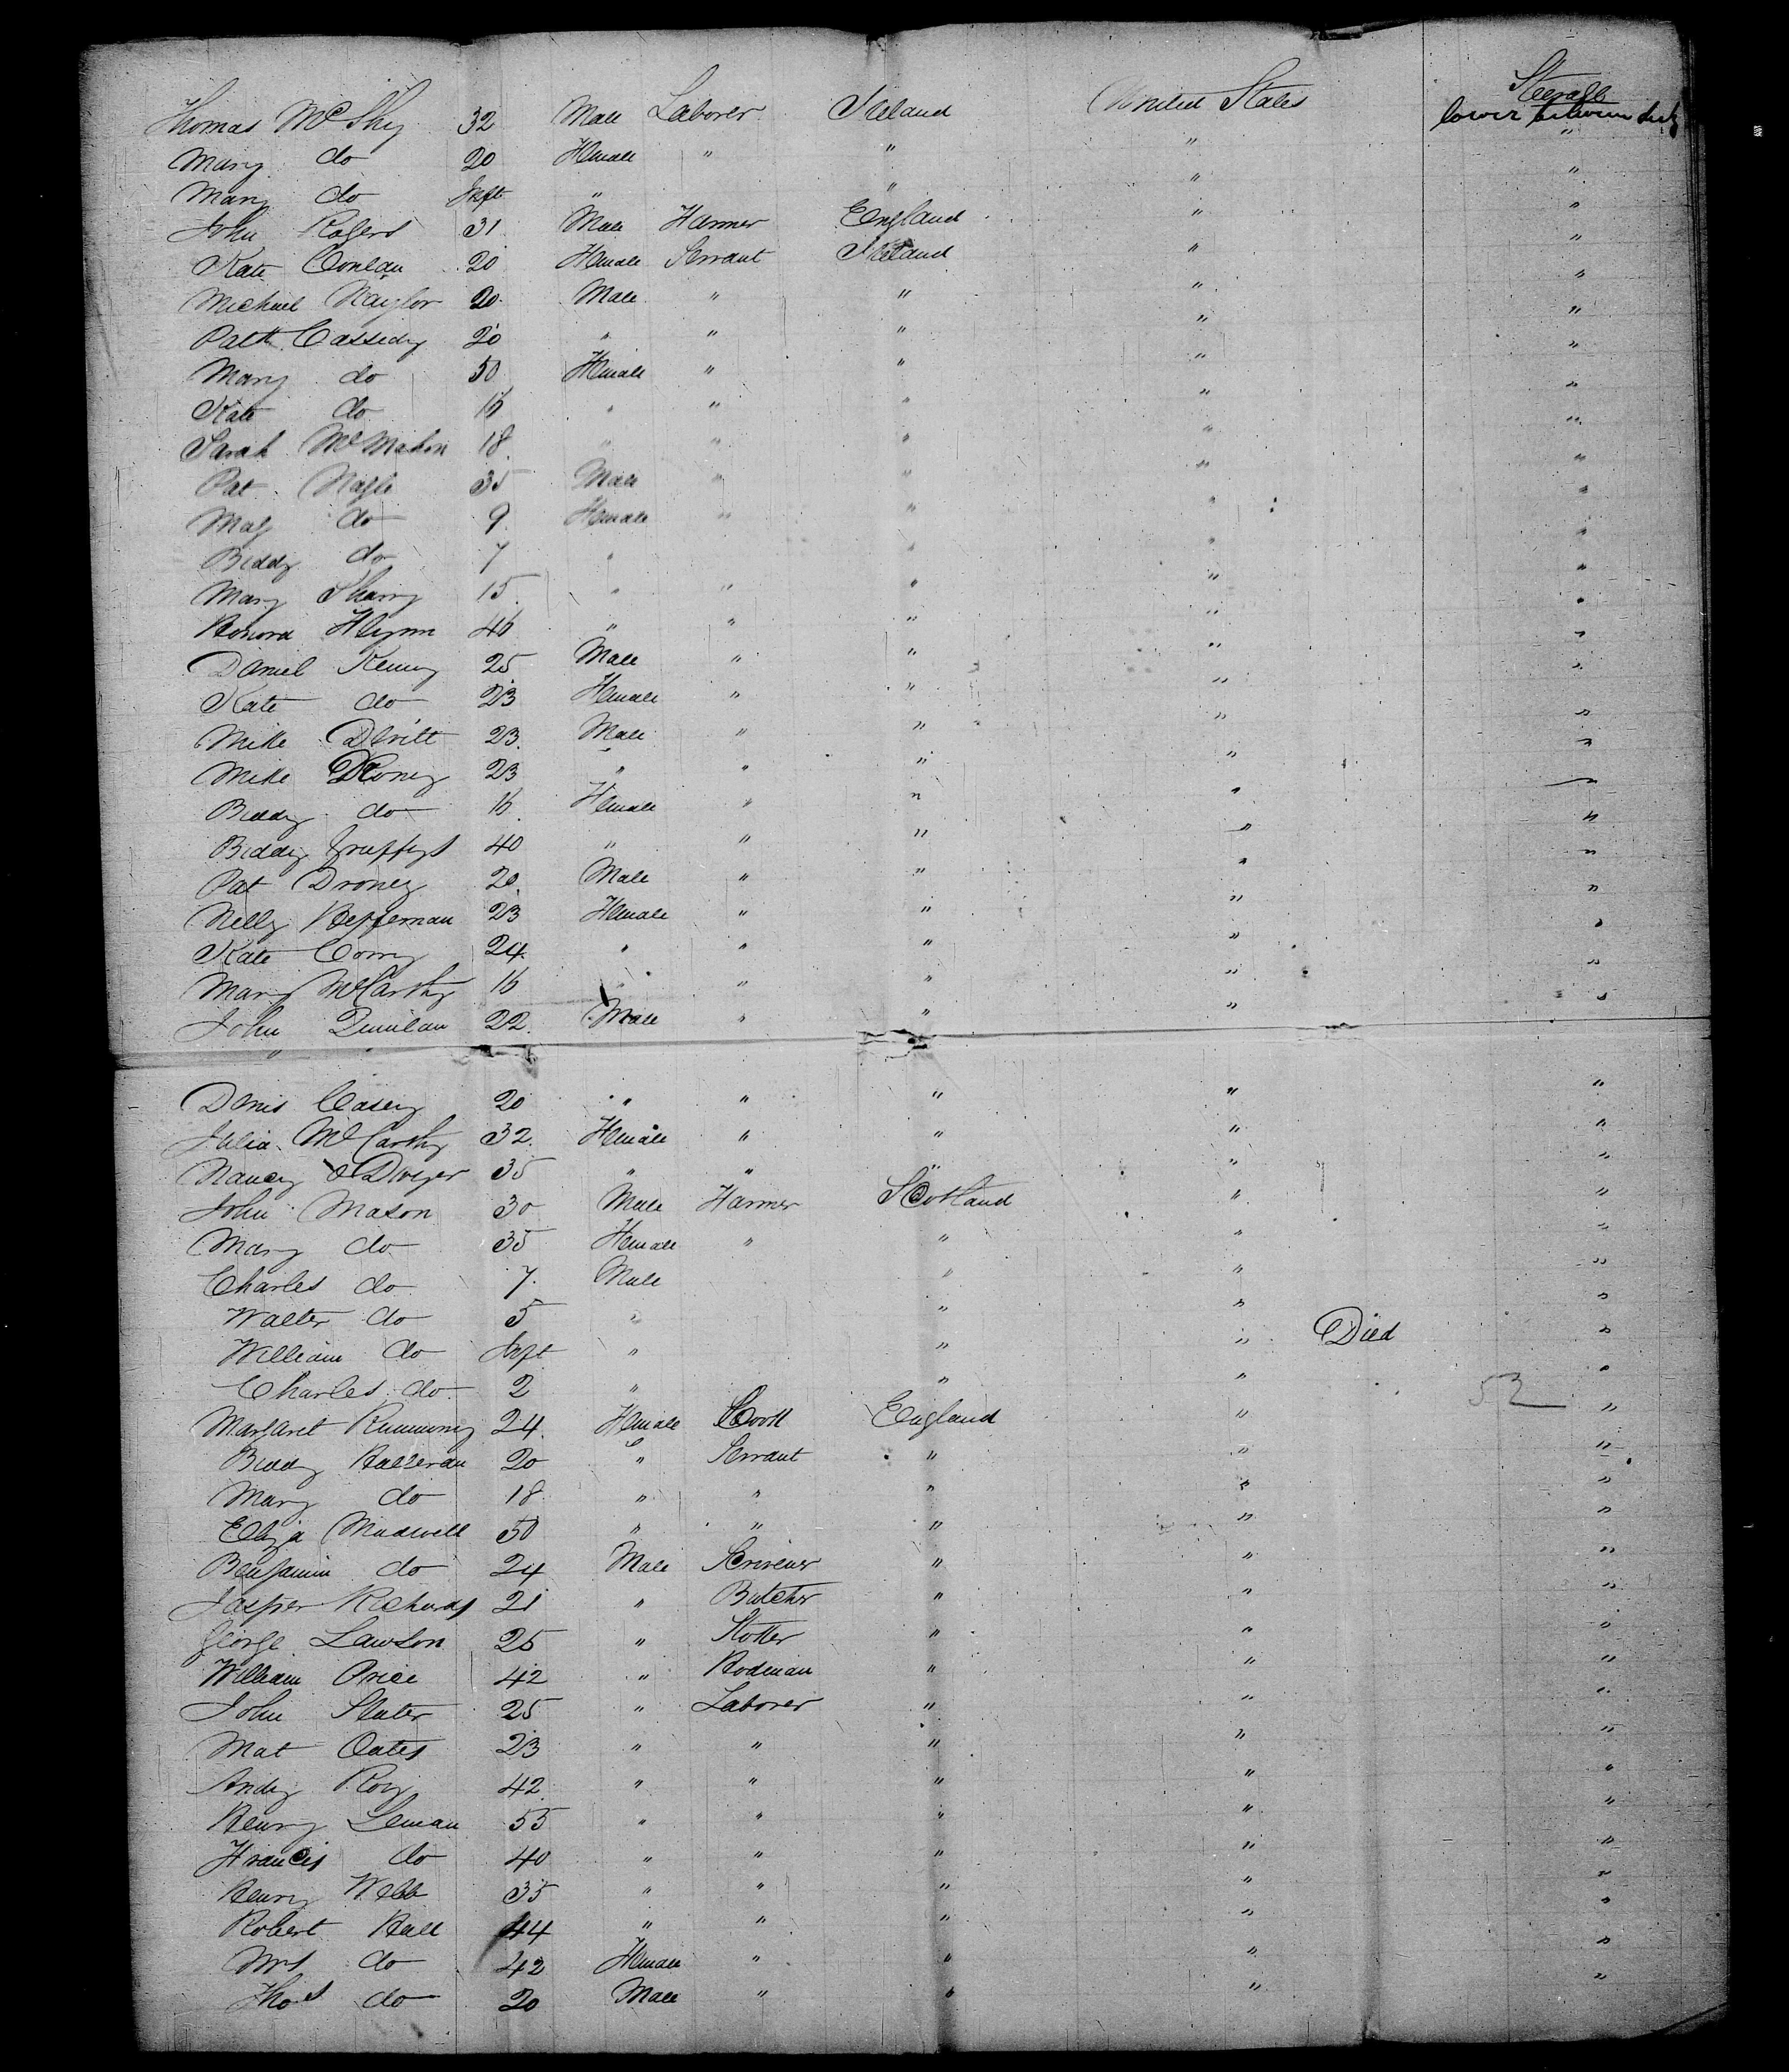 Thomas McShey 32 Male Laborer Ireland United States Steerage
lower between deck
Mary do 20 Female " " " "
Mary do Inft " " " "
John Rogers 31 Male Farmer England " "
Kate Conlan 20 Female Servant Ireland " "
Michael Naylor 20 Male " " " "
Patk Cassidy 20 " " " " "
Mary do 50 Female " " " "
Kate do 16 " " " " "
Sarah McMahon 18 " " " " "
Pat Nagle 35 Male " " " "
Mag do 9 Female " " " "
Biddy do 7 " " " "
Mary Sharry 15 " " " " "
Honora Flynn 46 " " " " "
Daniel Kenny 25 Male " " " "
Kate do 23 Female " " " "
Mike Devitt 23 Male " " " "
Mike Droney 23 " " " " "
Biddy do 16 Female " " " "
Biddy 40 " " " " "
Pat Droney 20 Male " " " "
Nelly Heffernan 23 Female " " " "
Kate Corry 24 " " " " "
Mary McCarthy 16 " " " " "
John Quinlan 22 Male " " " "
Denis Casey 20 " " " " "
Julia McCarthy 32 Female " " " "
Nancy O Dwyer 35 " " " " "
John Mason 30 Male Farmer Scotland " "
Mary do 35 Female " " " "
Charles do 7 Male " " "
Walter do 5 " " " "
William do Inft " " " Died "
Charles do 2 " " " "
Margaret 24 Female Cook England " 52 "
Biddy Halleran 20 " Servant " " "
Mary do 18 " " " " "
Eliza Maxwell 50 " " " " "
Benjamin do 24 Male Scrivener " " "
Jasper Richards 21 " Butcher " " "
George Lawson 25 " " " "
William Price 42 " Hodman " " "
John Slater 25 " Laborer " " "
Mat Oates 23 " " " " "
Andy Roy 42 " " " " "
Henry Leman 55 " " " " "
Francis do 40 " " " " "
Henry Webb 35 " " " " "
Robert Hall 44 " " " " "
Mrs do 42 Female " " " "
Thos do 20 Male " " " "